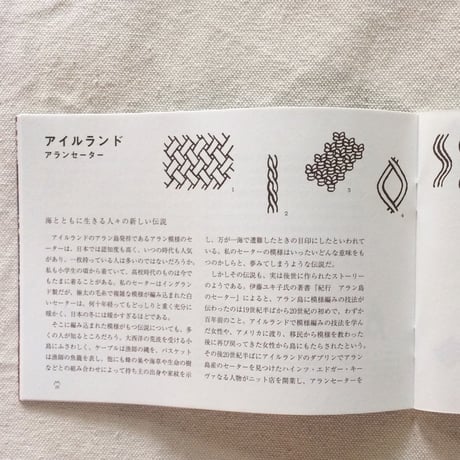 アイルランド
アランセーター
1
2
3
4
海とともに生きる人々の新しい伝説
アイルランドのアラン島発祥であるアラン模様のセ
ーターは、日本では認知度も高く、いつの時代も人気が
あり、一枚持っている人は多いのではないだろうか。
私も小学生の頃から着ていて、高校時代のものは今で
もたまに着ることがある。私のセーターはイングラン
ド製だが、極太の毛糸で複雑な模様が編み込まれた白
いセーターは、何十年経ってもどっしりと重く充分に
暖かく、日本の冬には暖かすぎるほどである。
そこに編み込まれた模様がもつ伝説についても、多
くの人が知るところだろう。大西洋の荒波を受ける小
島にふさわしく、ケーブルは漁師の縄を、バスケット
は漁師の魚籠を表し、他にも蜂の巣や海草や生命の樹
などとの組み合わせによって持ち主の出身や家紋を示
し、万が一海で遭難したときの目印にしたといわれて
いる。私のセーターの模様はいったいどんな意味をも
つのかしらと、夢みてしまうような伝説だ。
しかしその伝説も、実は後世に作られたストーリー
のようである。伊藤ユキ子氏の著書『紀行 アラン島
のセーター』によると、アラン島に模様編みの技法が
伝わったのは19世紀半ばから20世紀の初めで、わずか
百年前のこと。アイルランドで模様編みの技法を学ん
だ女性や、アメリカに渡り、移民から模様を教わった
後に再び戻ってきた女性から島にもたらされたという。
その後20世紀半ばにアイルランドのダブリンでアラン
島産のセーターを見つけたハインツ・エドガー・キー
ヴァなる人物がニット店を開業し、アランセーターを